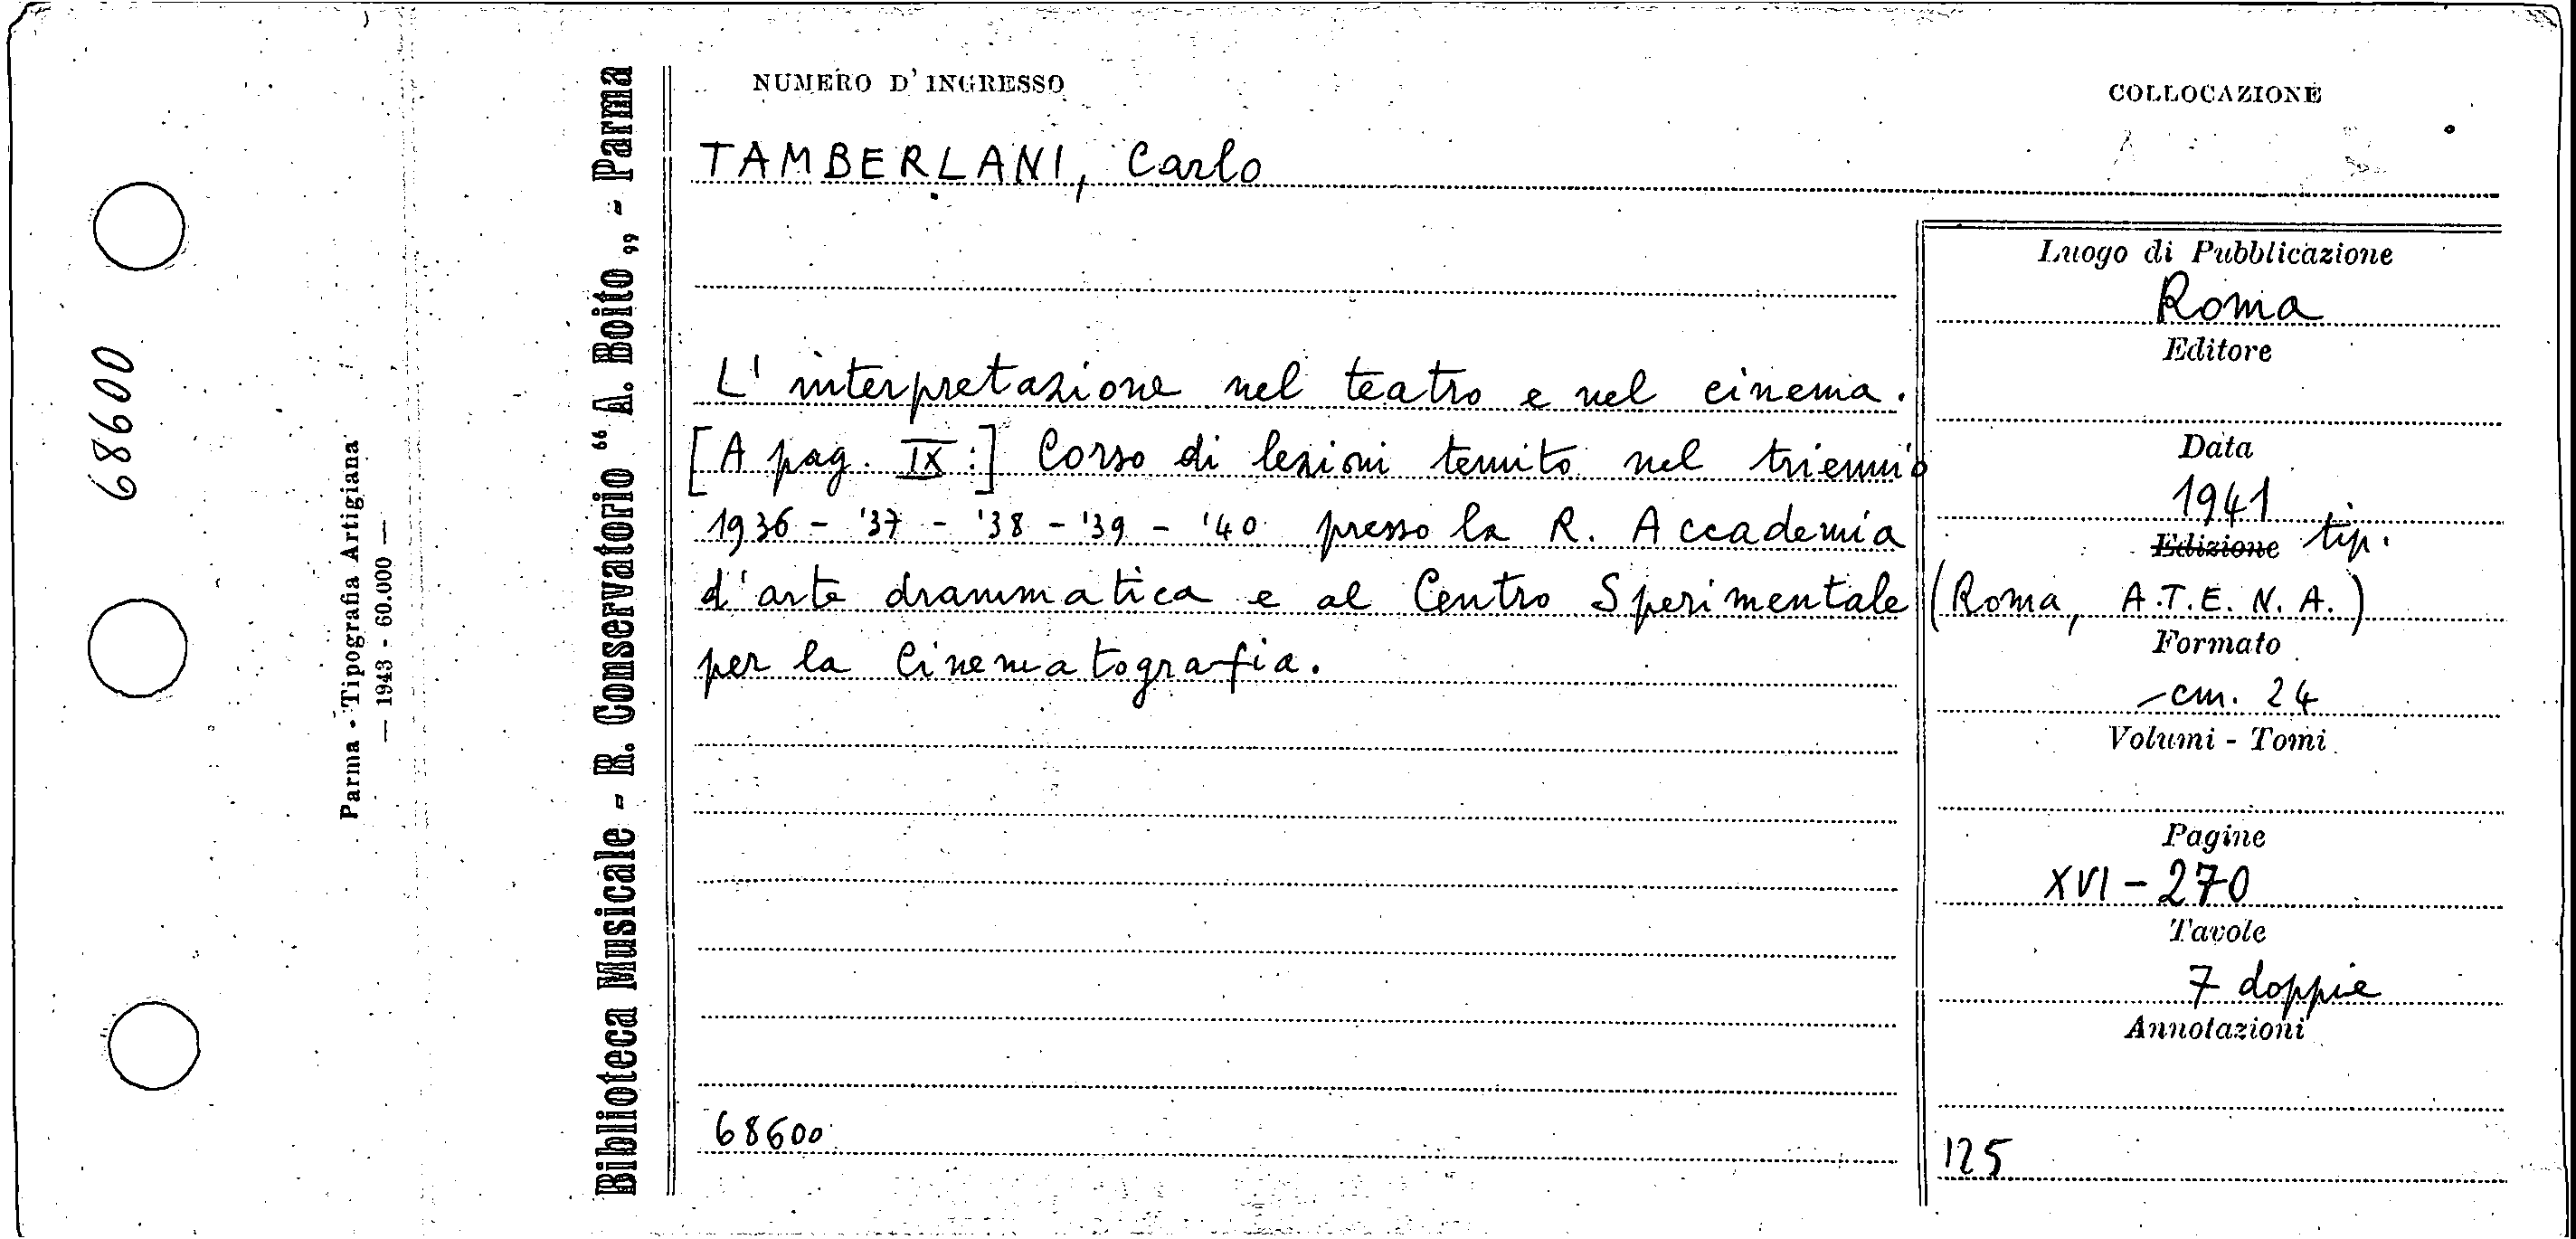 68600
Parma - Tipografia Artigiana
— 1943 - 60.000 —
Biblioteca Musicale - R. Conservatorio “ A. Boito „ - Parma
NUMERO D' INGRESSO
COLLOCAZIONE
TAMBERLANI, Carlo
L' interpretazione nel teatro e nel cinema.
[A pag. IX:] Corso di lezioni tenuto nel triennio
1936 - '37 - '38 - '39 - '40 presso la R. Accademia
d'arte drammatica e al Centro Sperimentale
per la Cinematografia.
68600
Luogo di Pubblicazione
Roma
Editore
Data
1941
Edizione tip.
(Roma, A.T.E.N.A.)
Formato
cm. 24
Volumi - Tomi
Pagine
XVI - 270
Tavole
7 doppie
Annotazioni
125